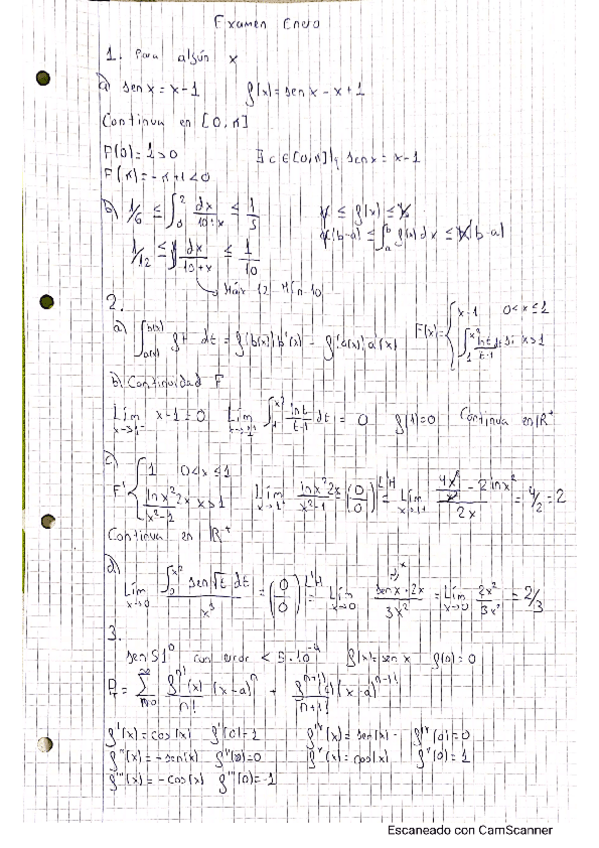 Examen Enero
1. Para algún x
a) sen x = x-1 f(x) = sen x - x + 1
Continua en [0, π]
F(0) = 1 > 0 ∃ c ∈ [0,π] | sen x = x-1
F(π) = -π+1 < 0
b) 1/6 ≤ ∫₀² dx/(10+x) ≤ 1/5 ≤ f(x) ≤
(b-a) ≤ ∫ₐᵇ f(x) dx ≤ (b-a)
1/12 ≤ dx/(10+x) ≤ 1/10
Máx 12 Mín 10
2.
a) ∫_{a(x)}^{b(x)} ft dt = f(b(x)) b'(x) - f(a(x)) a'(x) F(x) = { x-1 0<x≤1
∫₁^{x²} lnt/(t-1) dt si x>1
b) Continuidad F
Lim x→1⁻ x-1 = 0 Lim ∫₁^{x²} lnt/(t-1) dt = 0 f(1)=0 Continua en ℝ⁺
c) F' { 1 0<x≤1
lnx² 2x/(x²-1) x>1 Lim x→1⁺ lnx² 2x/(x²-1) = (0/0) L'H = Lim x→1⁺ (4x²/x² - 2 lnx²)/2x = 4/2 = 2
Continua en ℝ⁺
d) Lim x→0 ∫₀^{x²} sen√t dt / x³ = (0/0) L'H = Lim x→0 sen x · 2x / 3x² = Lim x→0 2x²/3x² = 2/3
3.
sen 51° con error < 5·10⁻⁴ f(x) = sen x f(0) = 0
P = Σ_{n=0}^{∞} fⁿ(x)/n! (x-a)ⁿ + f^{n+1}( )/(n+1)! (x-a)^{n+1}
f'(x) = cos(x) f'(0) = 1 f^{IV}(x) = sen(x) f^{IV}(0) = 0
f''(x) = -sen(x) f''(0) = 0 f^{V}(x) = cos(x) f^{V}(0) = 1
f'''(x) = -cos(x) f'''(0) = -1
Escaneado con CamScanner